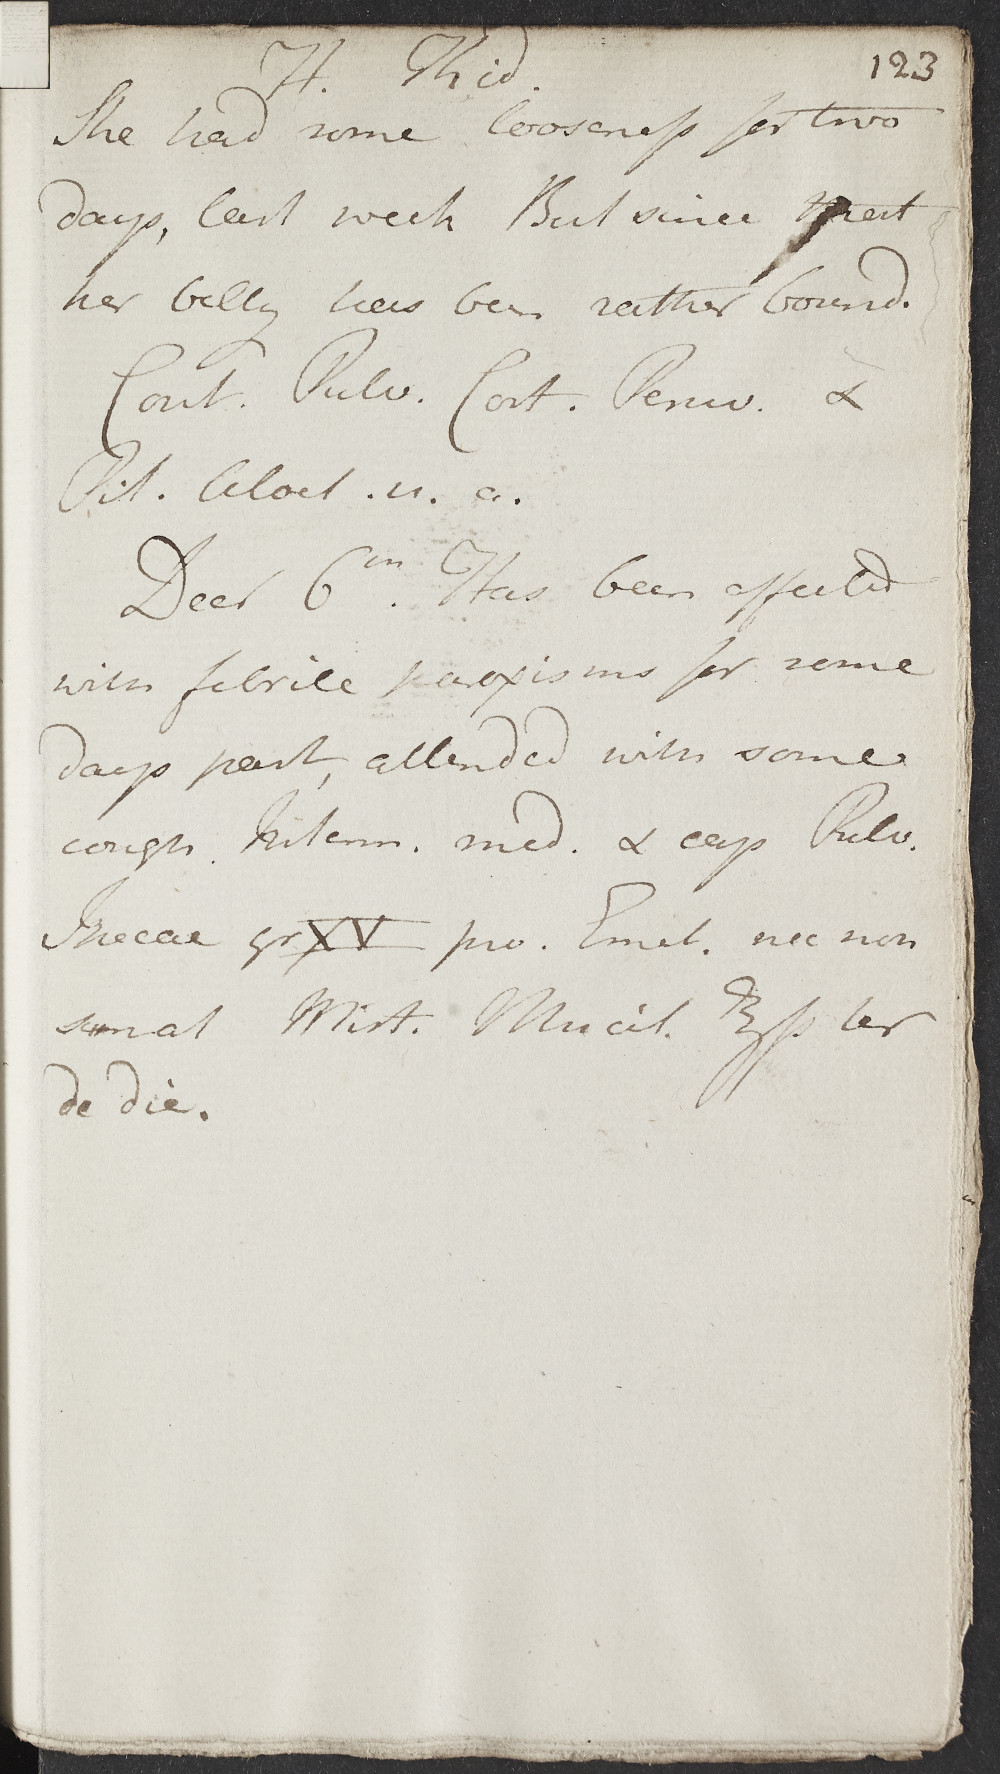 H. Thid. 123
She had some looseness for two
days, last week But since that
her belly has been rather bound.
Cont. Pulv. Cort. Peruv. &
Pil. Aloet. u. a.
Decr 6m. Has been affected
with febrile paroxisms for some
days past, attended with some
cough. Interm. med. & cap Pulv.
Ipecac gr XV pro. Emet. nec non
sumat Mist. Mucil. ℥ſs ter
de die.